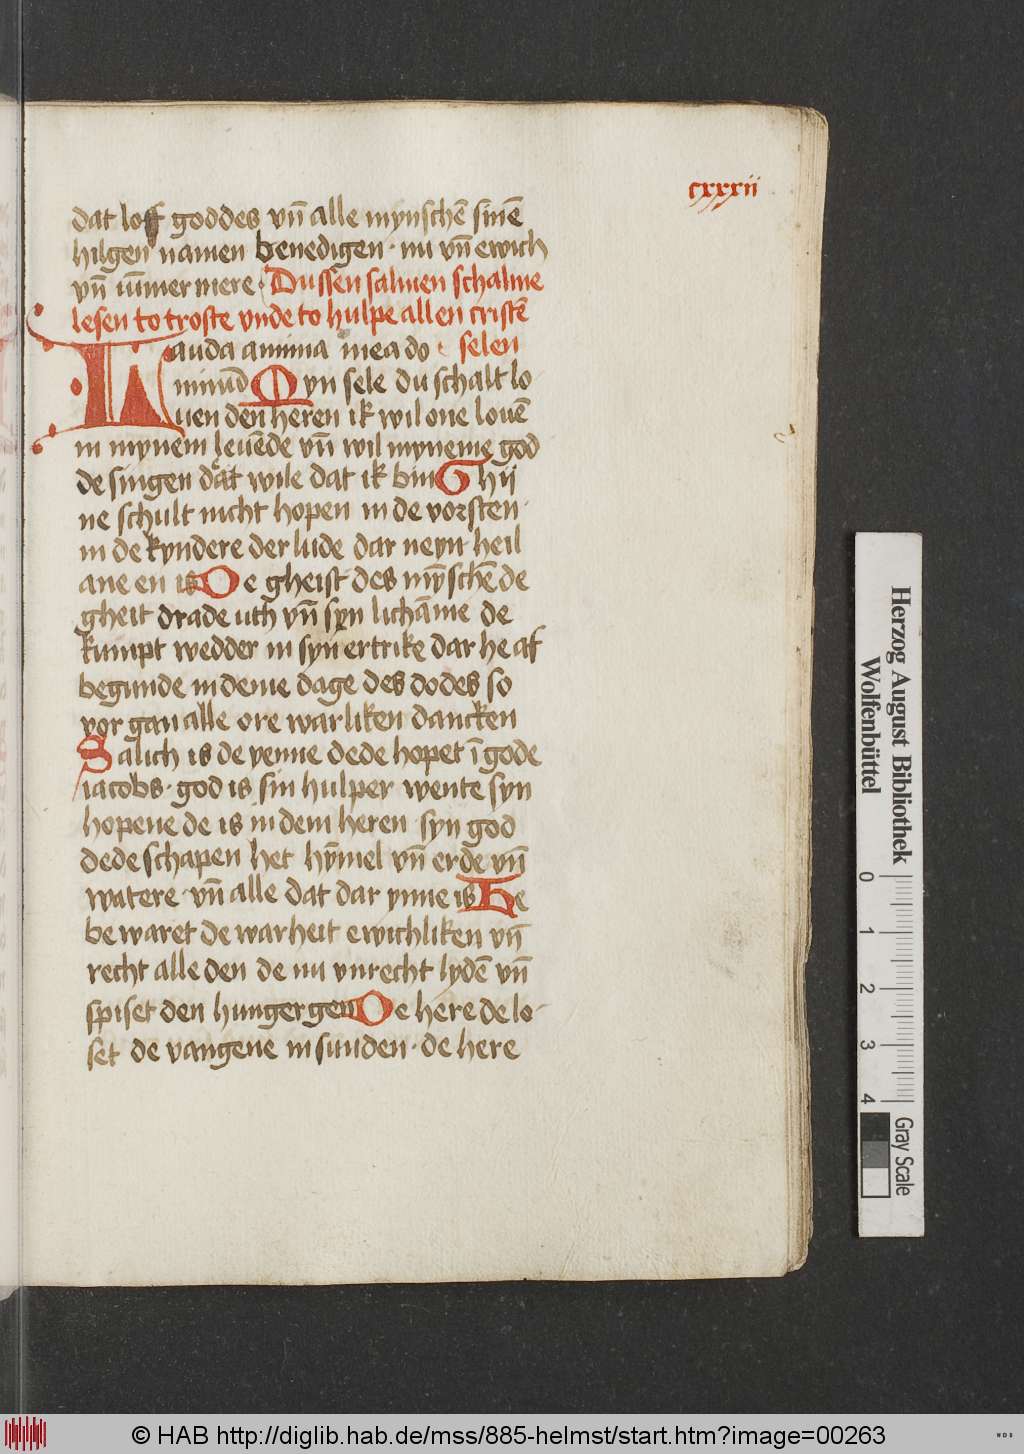 cxxxii
dat loff goddes vn̄ alle mynschē sinē
hilgen namen benedigen · nu vn̄ ewich
vn̄ iūmer mere · Dussen salmen schalme
lesen to troste vnde to hulpe allen cristē
Lauda anima mea do selen
minū Myn sele du schalt lo
uen den heren ik wil one louē
in mynem leuēde vn̄ wil myneme god
de singen dat wile dat ik bin Ghij
ne schult nicht hopen in de vorsten
in de kyndere der lude dar neyn heil
ane en is De gheist des mȳschē de
gheit drade uth vn̄ syn lichāme de
kumpt wedder in syn ertrike dar he af
begunde in deme dage des dodes so
vor gan alle ore warliken dancken
Salich is de yenne dede hopet ī gode
iacobs · god is sin hulper wente syn
hopene de is in dem heren syn god
dede schapen het hȳmel vn̄ erde vn̄
watere vn̄ alle dat dar ynne is He
be waret de warheit ewichliken vn̄
recht alle den de nu vnrecht lydē vn̄
spiset den hungergen De here de lo-
set de vangene in sunden · de here
Herzog August Bibliothek
Wolfenbüttel
0 1 2 3 4
Gray Scale
© HAB http://diglib.hab.de/mss/885-helmst/start.htm?image=00263